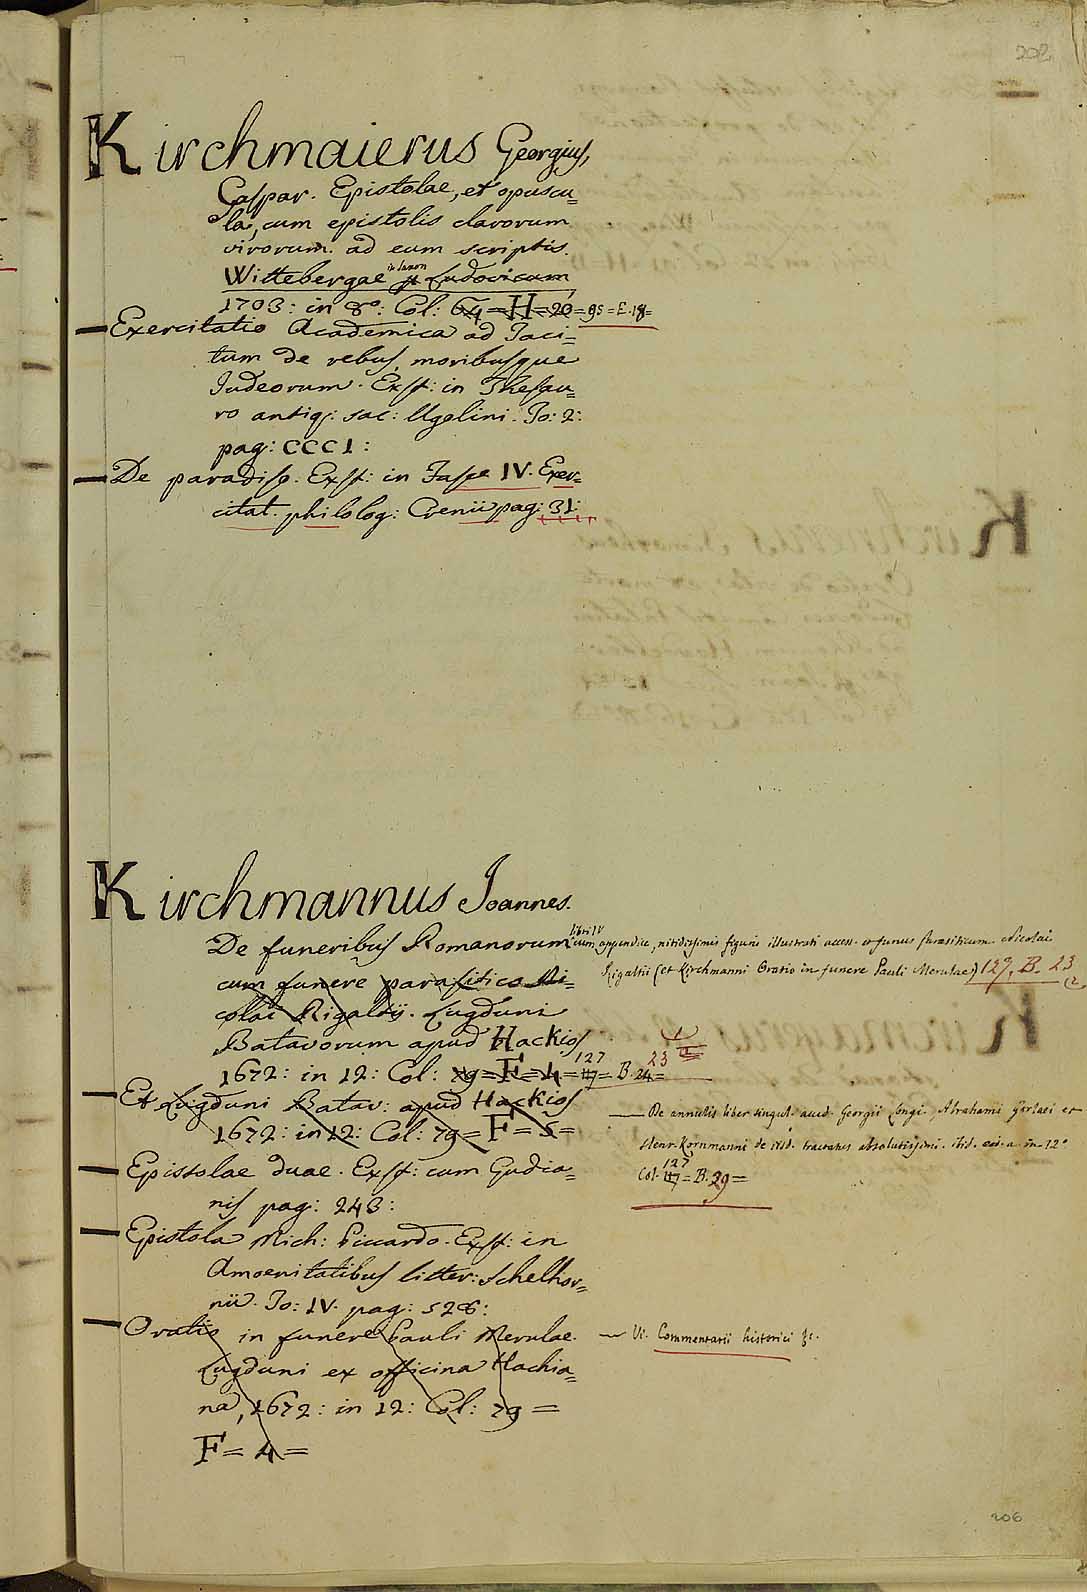 202
Kirchmaierus Georgius,
Caspar. Epistolae, et opuscu=
la, cum epistolis clarorum
virorum ad eum scriptis.
Wittebergae in Saxon Ludovicum
1703: in 8°: Col: 64=H=20=95=E.18=
Exercitatio Academica ad Taci=
tum de rebus, moribusque
Iudeorum. Exst: in Thesau=
ro antiq: sac: Ugelini. To: 2:
pag: CCCI:
De paradiso. Exst: in Fasce IV. Exer=
citat. philolog: Crenii pag: 31:
Kirchmannus Joannes.
De funeribus Romanorum libri IV cum appendice, nitidissimis figuris illustrati access. et funus parasiticum Nicolai
Rigaltii (et Kirchmanni Oratio in funere Pauli Merulae) 127. B. 23
(2
cum funere parasitico Ni=
colai Rigaltii. Lugduni
Batavorum apud Hackios
1672: in 12: Col: 79=F=4=117 127=B.24= 23
Et Lugduni Batav: apud Hackios
1672: in 12: Col: 79=F=5=
De annulis liber singul. acced. Georgii Longi, Abrahami Gorlaei et
Henr. Kornmanni de iisd. tractatus absolutissimi. ibid. eod. a. in 12°
Col. 117 127=B.29=
Epistolae duae. Exst: cum Gudia=
nis pag: 243:
Epistola Mich: Piccardo. Exst: in
Amoenitatibus litter: Schelhor=
nii. To: IV. pag: 528:
Oratio in funere Pauli Merulae.
Lugduni ex officina Hackia=
na, 1672: in 12: Col: 79=
F=4=
Vi. Commentarii historici &c.
206